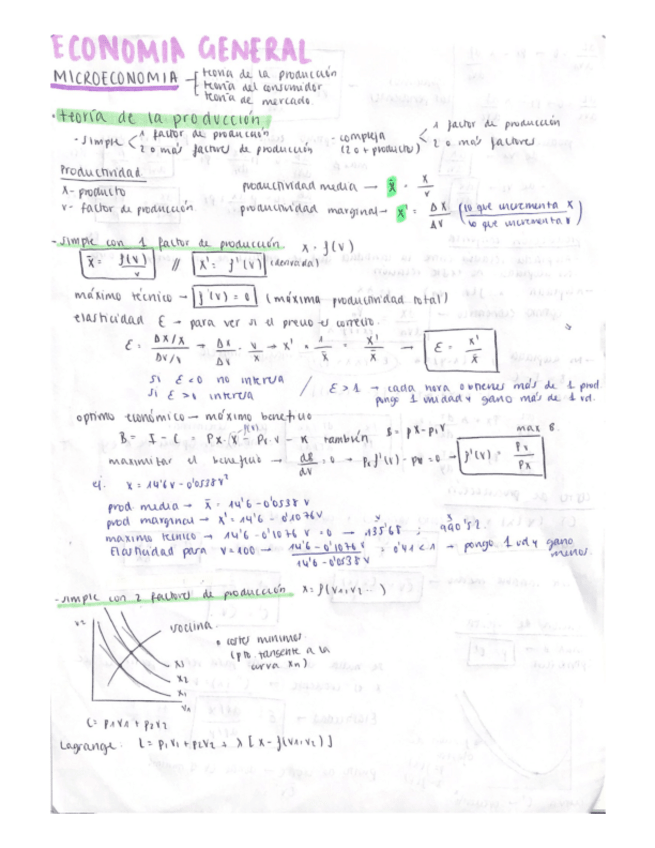 ECONOMIA GENERAL
MICROECONOMIA - teoría de la producción
teoría del consumidor
teoría de mercado.
· teoría de la producción
- simple < 1 factor de producción
2 o más factores de producción
- compleja (2 o + producto) < 1 factor de producción
2 o más factores
Productividad
X- producto
v- factor de producción
productividad media → x̄ = x/v
productividad marginal → x' = Δx/Δv (lo que incrementa x / lo que incrementa v)
- simple con 1 factor de producción x = f(v)
x̄ = f(v)/v // x' = f'(v) (derivada)
máximo técnico → f'(v) = 0 (máxima productividad total)
elasticidad ε → para ver si el precio es correcto.
ε = Δx/x / Δv/v → Δx/Δv · v/x → x' · 1/x̄ = x'/x̄ → ε = x'/x̄
si ε<0 no interesa
si ε>1 interesa
/ ε>1 → cada hora obtienes más de 1 prod.
pongo 1 unidad y gano más de 1 ud.
optimo económico → máximo beneficio
B = I - C = Px · x - Pv · v - K también B = px - pv v max B.
f(v)
maximizar el beneficio → dB/dv = 0 → Px f'(v) - pv = 0 → f'(v) = Pv/Px
ej. x = 14'6v - 0'0538v²
prod. media → x̄ = 14'6 - 0'0538 v
prod marginal → x' = 14'6 - 0'1076v
maximo tecnico → 14'6 - 0'1076 v = 0 → 135'68 ; 990'52.
Elasticidad para v=100 → 14'6 - 0'1076 v / 14'6 - 0'0538 v = 0'41 < 1 → pongo 1 ud y gano menos.
- simple con 2 factores de producción x = f(v1, v2 ...)
v2
isoclina
x3
x2
x1
v1
• costes minimos
(pto. tangente a la
curva xn)
C = p1v1 + p2v2
Lagrange: L = p1v1 + p2v2 + λ [x - f(v1, v2)]